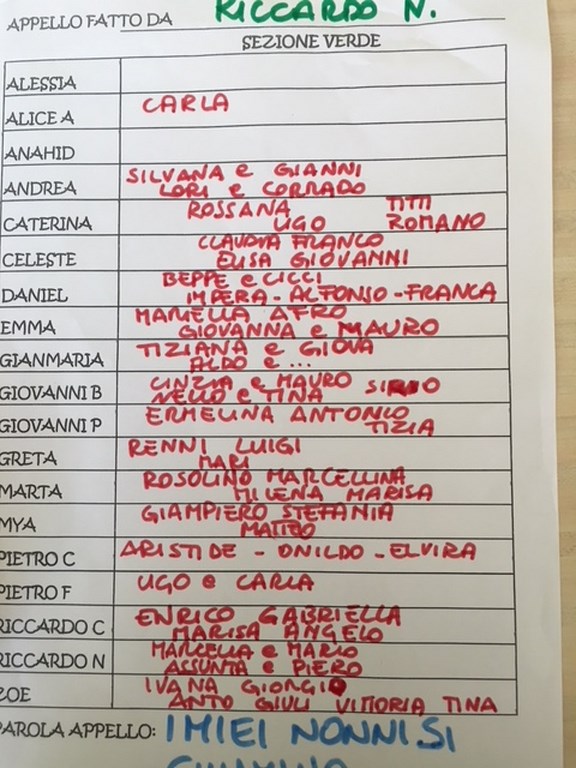 APPELLO FATTO DA RICCARDO N.
SEZIONE VERDE
ALESSIA
ALICE A CARLA
ANAHID
ANDREA SILVANA e GIANNI
LORI e CORRADO
CATERINA ROSSANA TITTI
UGO ROMANO
CELESTE CLAUDIA FRANCO
ELISA GIOVANNI
DANIEL BEPPE e CICCI
IMPERA - ALFONSO - FRANCA
EMMA MARIELLA AFRO
GIOVANNA e MAURO
GIANMARIA TIZIANA e GIOVA
ALDO e ...
GIOVANNI B CINZIA e MAURO
NELLO e TINA
GIOVANNI P ERMELINA ANTONIO
TIZIA
GRETA RENNI LUIGI
MARI
MARTA ROSOLINO MARCELLINA
MILENA MARISA
MYA GIAMPIERO STEFANIA
MATTEO
PIETRO C ARISTIDE - ONILDO - ELVIRA
PIETRO F UGO e CARLA
RICCARDO C ENRICO GABRIELLA
MARISA ANGELO
RICCARDO N MARCELLA e MARIO
ASSUNTA e PIERO
ZOE IVANA GIORGIO
ANTO GIULI VITTORIA TINA
PAROLA APPELLO: I MIEI NONNI SI